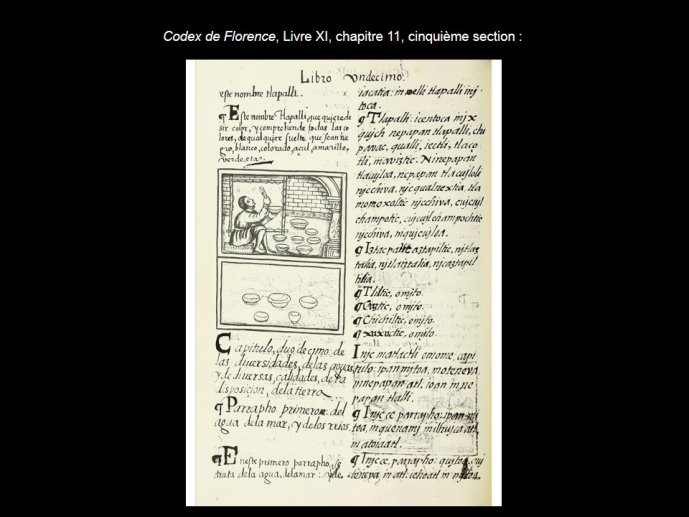 Codex de Florence, Livre XI, chapitre 11, cinquième section :
Libro Undecimo.
este nombre tlapalli.
¶ Este nombre Tlapalli, que quiere de
sir color, y comprehende todas las co
lores, de qualquier suelte que sean ne
gro, blanco, colorado, açul, amarillo,
verde. eta.
Capitulo, duo decimo de
las diuersidades, de las aguas
y de diuersas, calidades, de la
disposicion, de la tierra
¶ Parrapho primero del
agua de la mar, y de los rios.
¶ En este primero parrapho, se
trata de la agua, de la mar:
iacatia: in nelli tlapalli mj
toca.
¶ Tlapalli: icentoca mj x
quich nepapan tlapalli, chi
pavac, qualli, iectli, tlaço
tli, maviztic. Ninepapan
tlacujloa, nepapan tlacujlolli
njcchiva, njcqualnextia, tla
momoxoltic njcchiva, cujcujl
champotic, cujcujlchampochtic
njcchiva,
¶ Iztac
¶ Tliltic, omjto.
¶ Coztic, omjto.
¶ Chichiltic, omjto.
¶ xoxoctic, omjto.
Injc matlactli omome, capi
tulo: ipan mjtoa, moteneva,
yn nepapan atl, ioan in ne
papan tlalli.
¶ Injc ce parrapho: ipan mj
toa, in quenamj in ilhujca atl
in atoiaatl.
¶ Injc ce, parrapho: quitoa,
teneva, in atl: